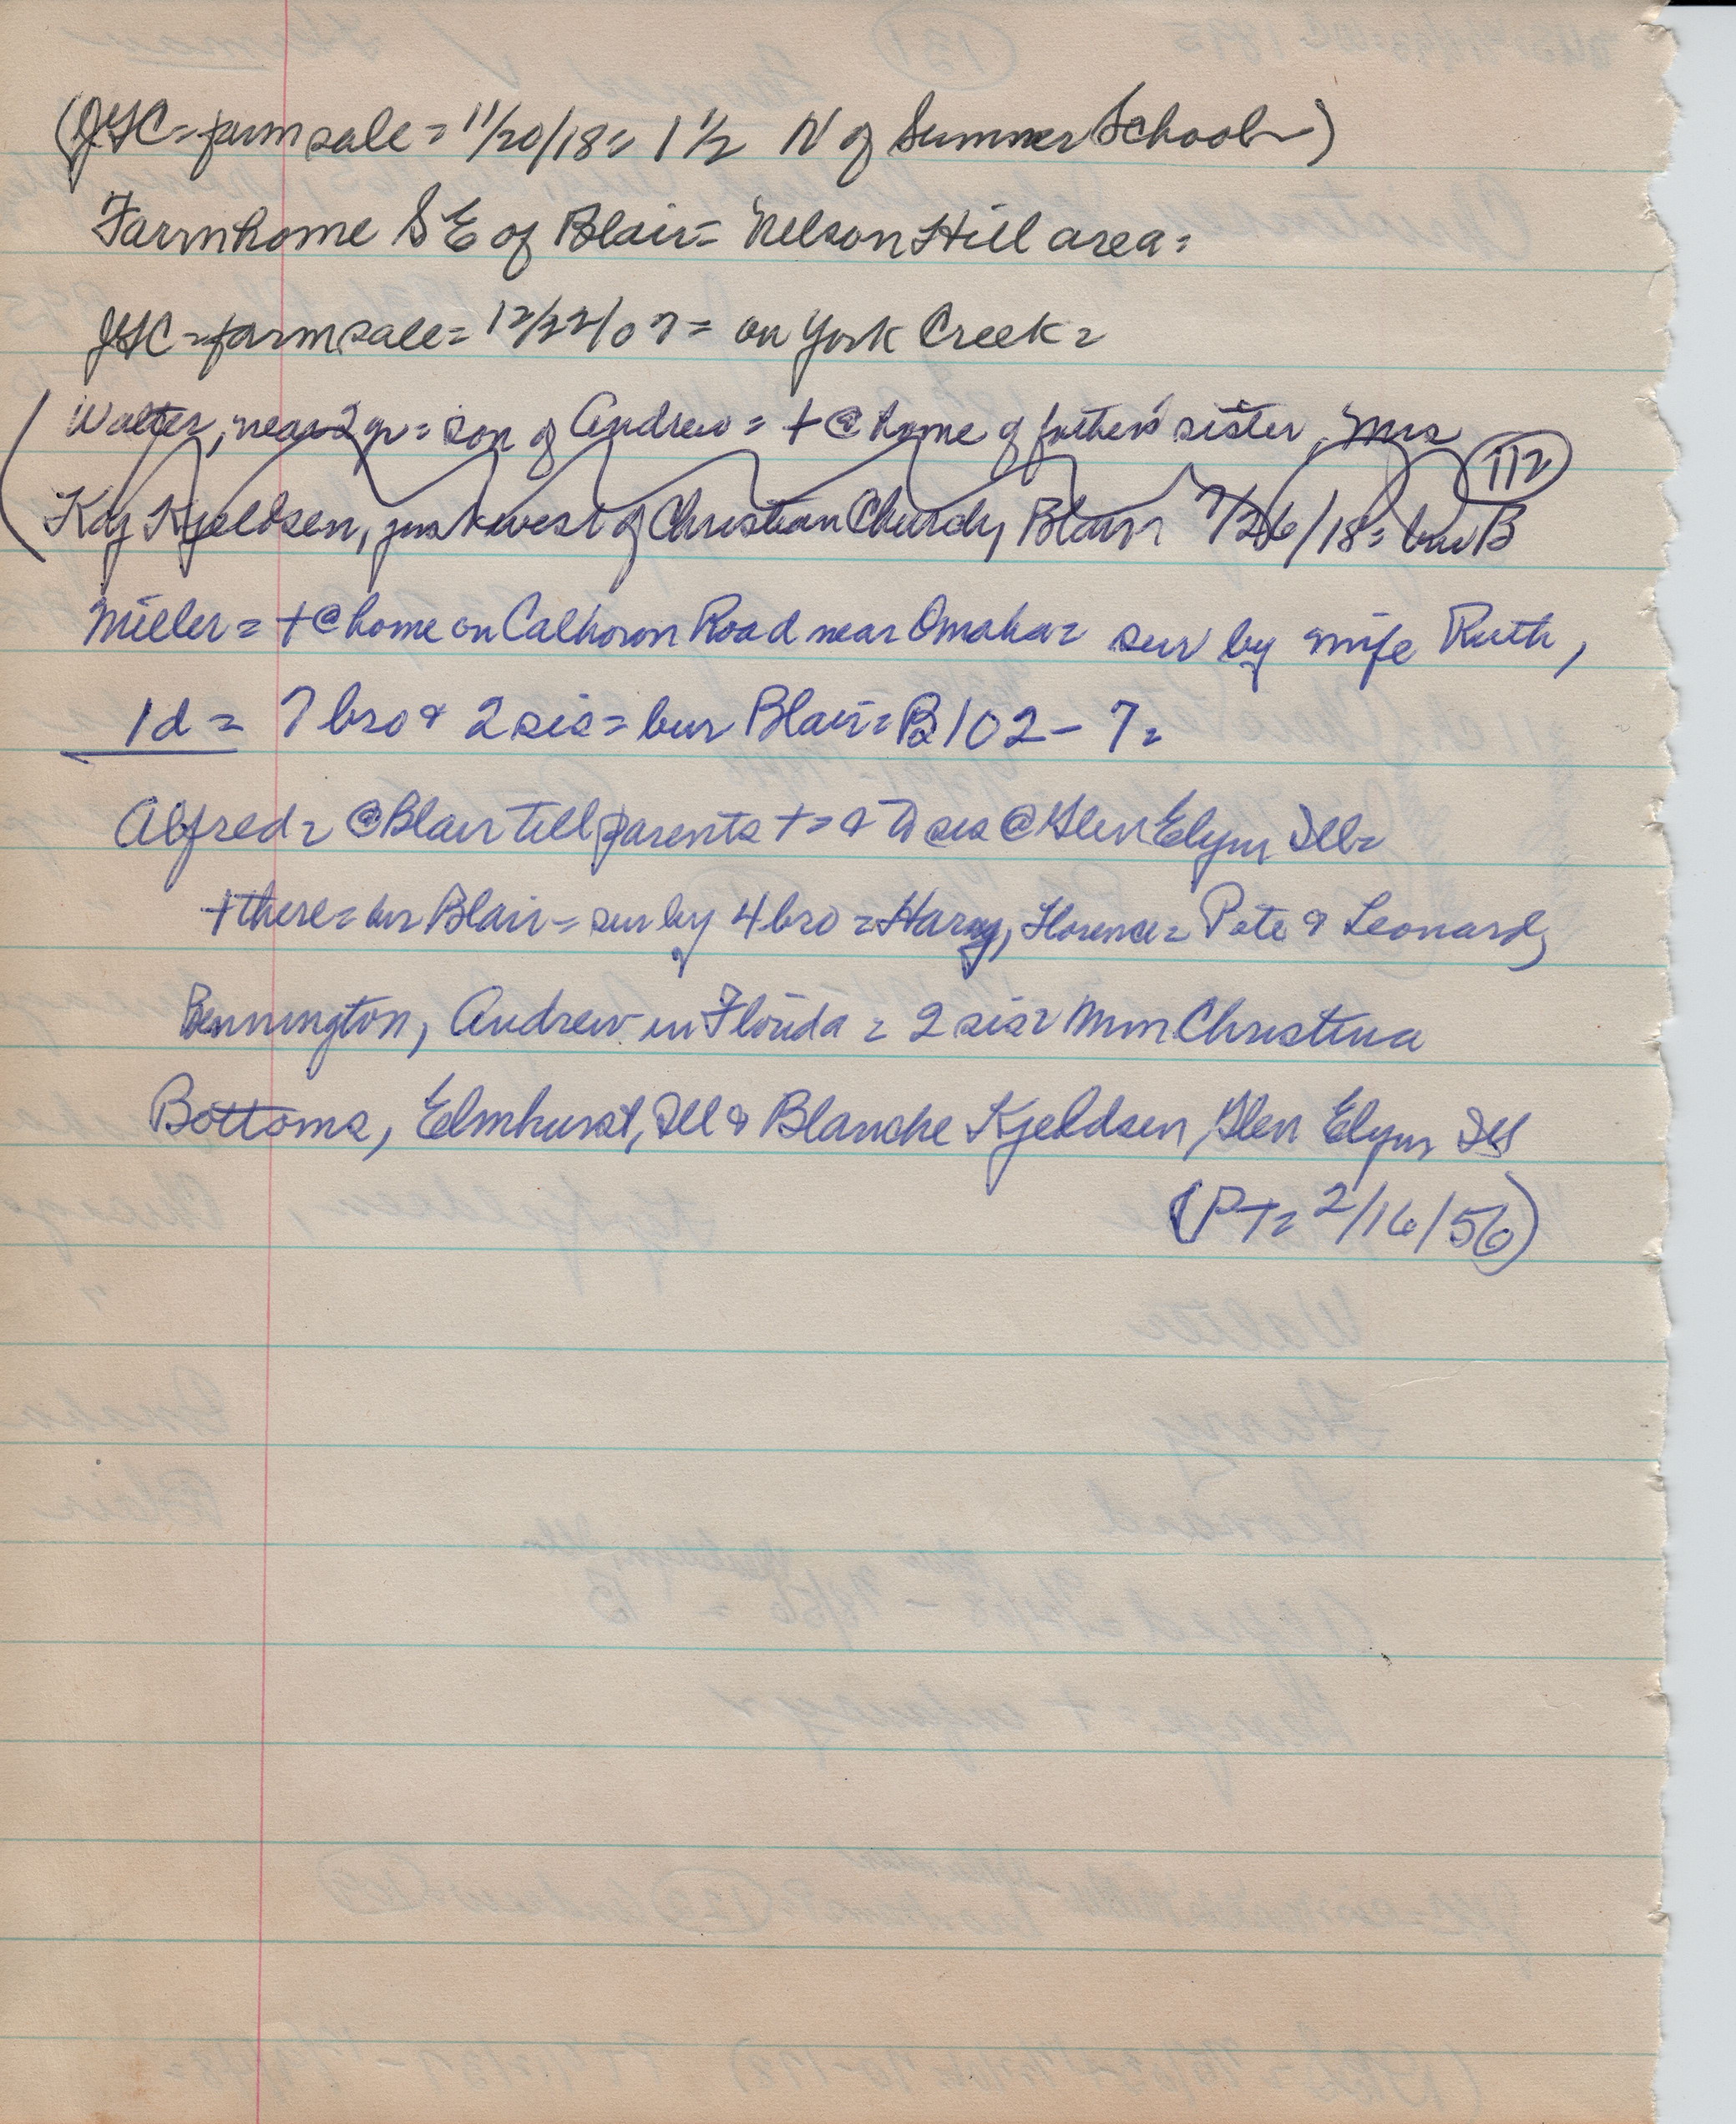 (JGC = farm sale = 11/20/18 = 1 1/2 N of Summer School)
Farm home S E of Blair = Nelson Hill area =
JGC = farm sale = 12/22/07 = on York Creek =
(Walter, near 2 yr = son of Andrew = + @ home of father's sister, Mrs
Kay Kjeldsen, just west of Christian Church, Blair = 7/26/18 = bur B (112)
Miller = + @ home on Calhoun Road near Omaha = sur by wife Ruth,
1d = 7 bro & 2 sis = bur Blair = B 102 - 7 =
Alfred = @ Blair till parents + = & sis @ Glen Elyn Ill =
+ there = bur Blair = sur by 4 bro = Harry, Florence = Pete & Leonard,
Bennington, Andrew in Florida = 2 sis = Christina
Bottoms, Elmhurst, Ill & Blanche Kjeldsen, Glen Elyn Ill
(PT = 2/16/56)